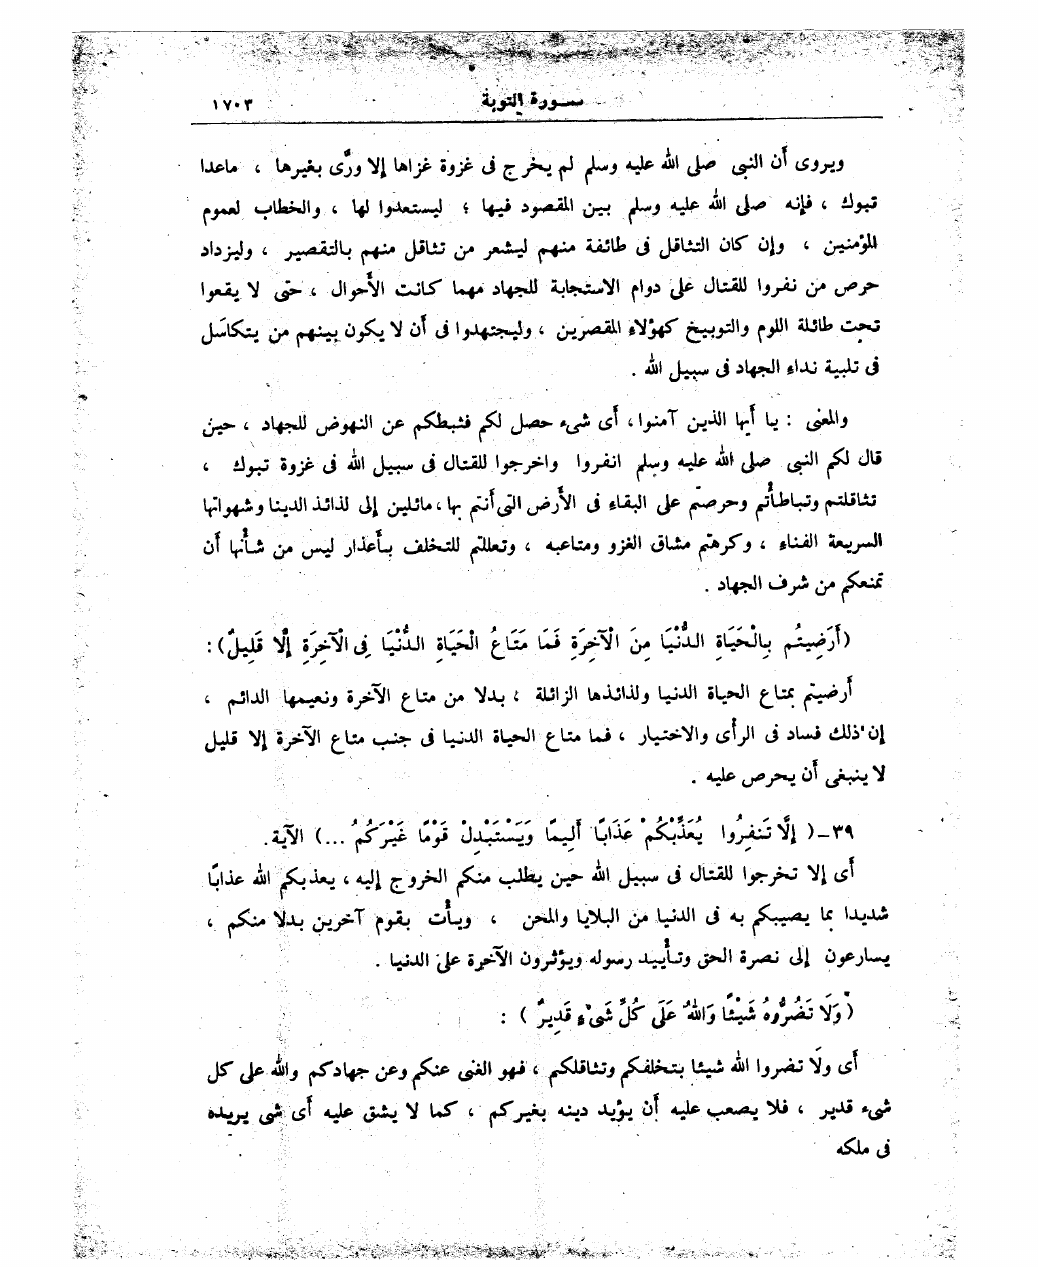 سورة التوبة ١٧٠٣
ويروى أن النبى صلى الله عليه وسلم لم يخرج فى غزوة غزاها إلا ورَّى بغيرها ، ماعدا
تبوك ، فإنه صلى الله عليه وسلم بين المقصود فيها ؛ ليستعدوا لها ، والخطاب لعموم
المؤمنين ، وإن كان التثاقل فى طائفة منهم ليشعر من تثاقل منهم بالتقصير ، وليزداد
حرص من نفروا للقتال على دوام الاستجابة للجهاد مهما كانت الأحوال ، حتى لا يقعوا
تحت طائلة اللوم والتوبيخ كهؤلاء المقصرين ، وليجتهدوا فى أن لا يكون بينهم من يتكاسَل
فى تلبية نداء الجهاد فى سبيل الله .
والمعنى : يا أيها الذين آمنوا، أى شىء حصل لكم فثبطكم عن النهوض للجهاد ، حين
قال لكم النبى صلى الله عليه وسلم انفروا واخرجوا للقتال فى سبيل الله فى غزوة تبوك ،
تثاقلتم وتباطأتم وحرصتم على البقاء فى الأرض التى أنتم بها، مائلين إلى لذائذ الدينا وشهواتها
السريعة الفناء ، وكرهتم مشاق الغزو ومتاعبه ، وتعللتم للتخلف بأعذار ليس من شأنها أن
تمنعكم من شرف الجهاد .
(أَرَضِيتُم بِالْحَيَاةِ الدُّنْيَا مِنَ الْآخِرَةِ فَمَا مَتَاعُ الْحَيَاةِ الدُّنْيَا فِى الْآخِرَةِ إِلَّا قَلِيلٌ) :
أرضيتم بمتاع الحياة الدنيا ولذائذها الزائلة ، بدلا من متاع الآخرة ونعيمها الدائم ،
إن ذلك فساد فى الرأى والاختيار ، فما متاع الحياة الدنيا فى جنب متاع الآخرة إلا قليل
لا ينبغى أن يحرص عليه .
٣٩ــ ( إِلَّا تَنفِرُوا يُعَذِّبْكُمْ عَذَابًا أَلِيمًا وَيَسْتَبْدِلْ قَوْمًا غَيْرَكُمْ ...) الآية.
أى إلا تخرجوا للقتال فى سبيل الله حين يطلب منكم الخروج إليه ، يعذبكم الله عذابًا
شديدا بما يصيبكم به فى الدنيا من البلايا والمحن ، ويأت بقوم آخرين بدلا منكم ،
يسارعون إلى نصرة الحق وتأييد رسوله ويؤثرون الآخرة على الدنيا .
( وَلَا تَضُرُّوهُ شَيْئًا وَاللهُ عَلَى كُلِّ شَىْءٍ قَدِيرٌ ) :
أى ولَا تضروا الله شيئا بتخلفكم وتثاقلكم ، فهو الغنى عنكم وعن جهادكم والله على كل
شىء قدير ، فلا يصعب عليه أن يؤيد دينه بغيركم ، كما لا يشق عليه أى شى يريده
فى ملكه